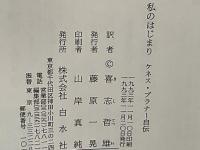 私のはじまり ケネス・ブラナー自伝
一九九三年一月一〇日印刷
一九九三年二月一〇日発行
訳者 © 喜志哲雄
発行者 藤原一晃
印刷者 山岸真純
発行所 株式会社 白水社
東京都千代田区神田小川町三の二四
電話
振替 東京
郵便番号